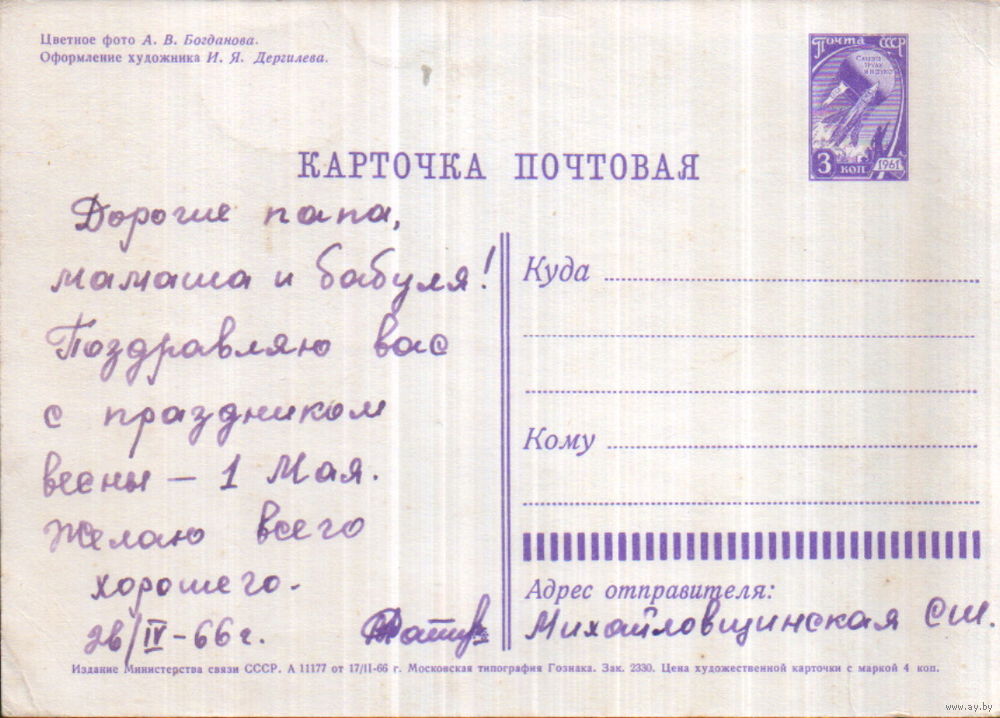 Цветное фото А. В. Богданова.
Оформление художника И. Я. Дергилева.
Почта СССР
3 коп
1961
КАРТОЧКА ПОЧТОВАЯ
Дорогие папа,
мамаша и бабуля!
Поздравляю вас
с праздником
весны – 1 Мая.
Желаю всего
хорошего.
26/IV–66 г.
Куда
Кому
Адрес отправителя:
Михайловщинская СШ.
Издание Министерства связи СССР. А 11177 от 17/II-66 г. Московская типография Гознака. Зак. 2330. Цена художественной карточки с маркой 4 коп.
www.ay.by